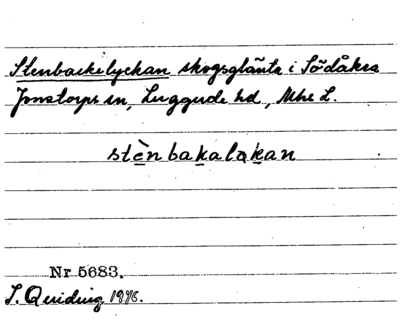 Stenbackelyckan skogsglänta i Södåkra
Jonstorps sn, Luggude hd, Mhs L.
stènbakalakan
Nr 5683.
S. Quiding 1976.